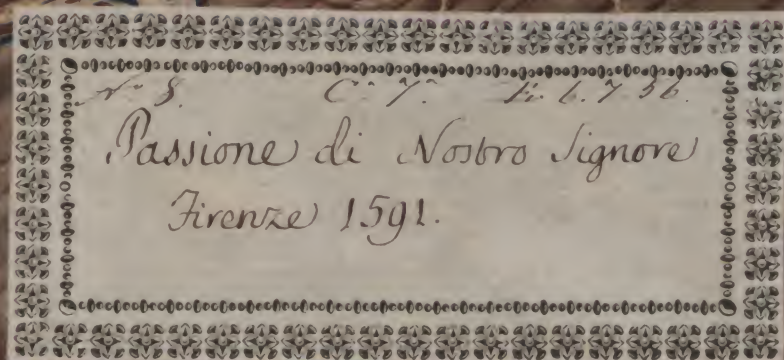 N.° 8. C.° 7.° L. 6. 7. 56.
Passione di Nostro Signore
Firenze 1591.